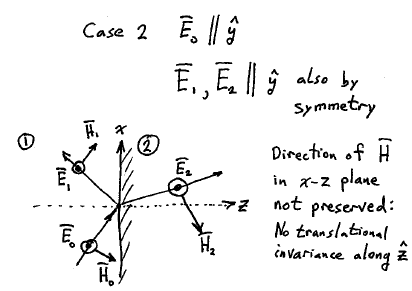 Case 2 E̅₀ ∥ ŷ
E̅₁, E̅₂ ∥ ŷ also by
symmetry
① H̅₁ x ②
E̅₁ E̅₂
E̅₀ H̅₀ H̅₂ z
Direction of H̅
in x-z plane
not preserved:
No translational
invariance along ẑ